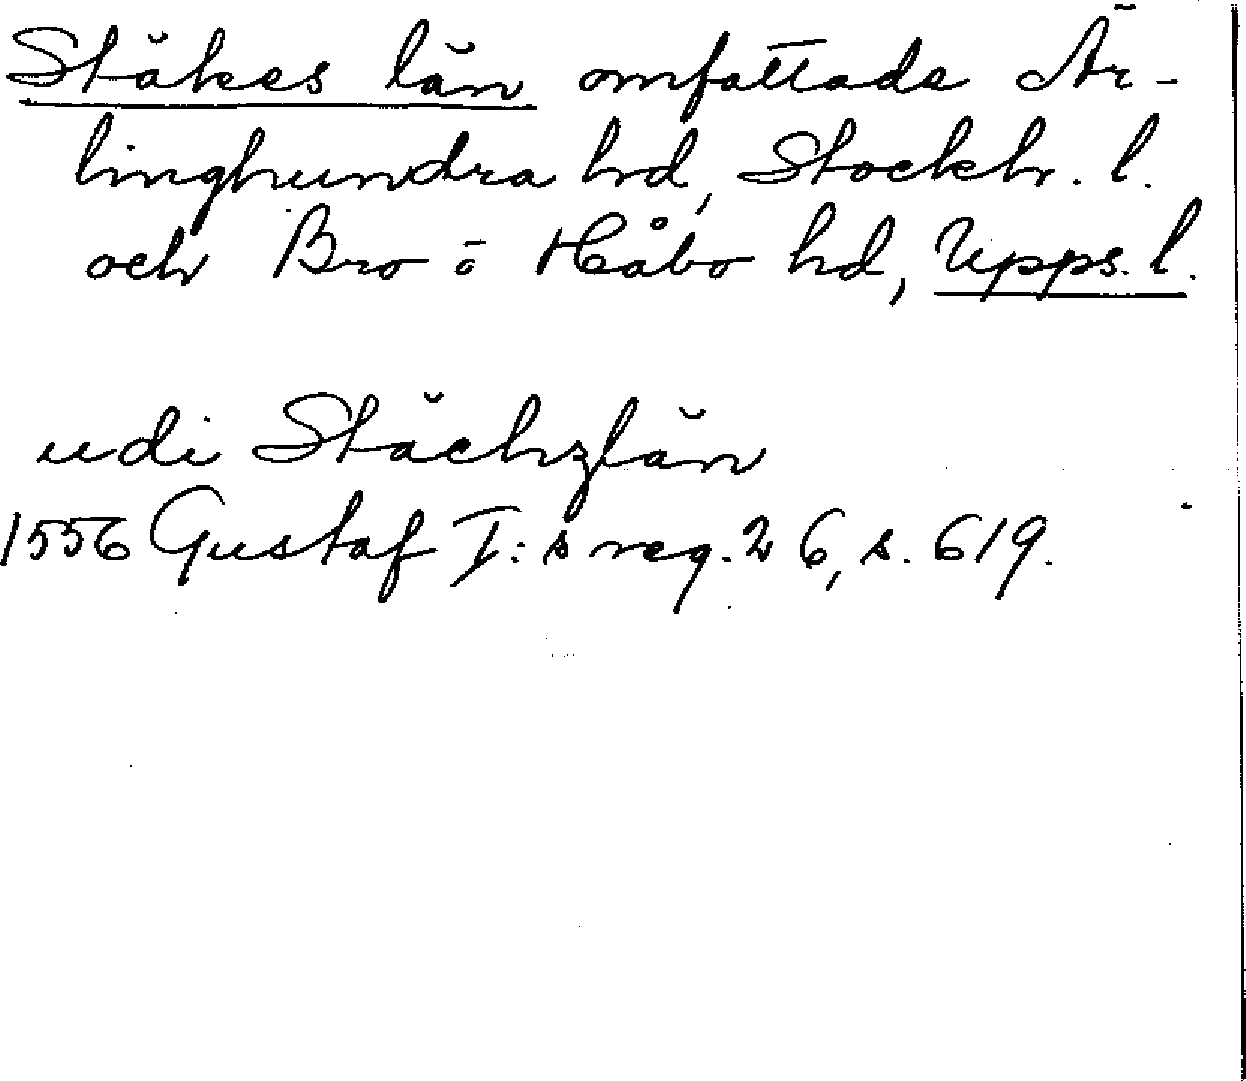 Stäkes län omfattade Är-
linghundra hd, Stockh. l.
och Bro o Håbo hd, Upps. l.
udi Stächzlän
1556 Gustaf I:s reg. 26, s. 619.